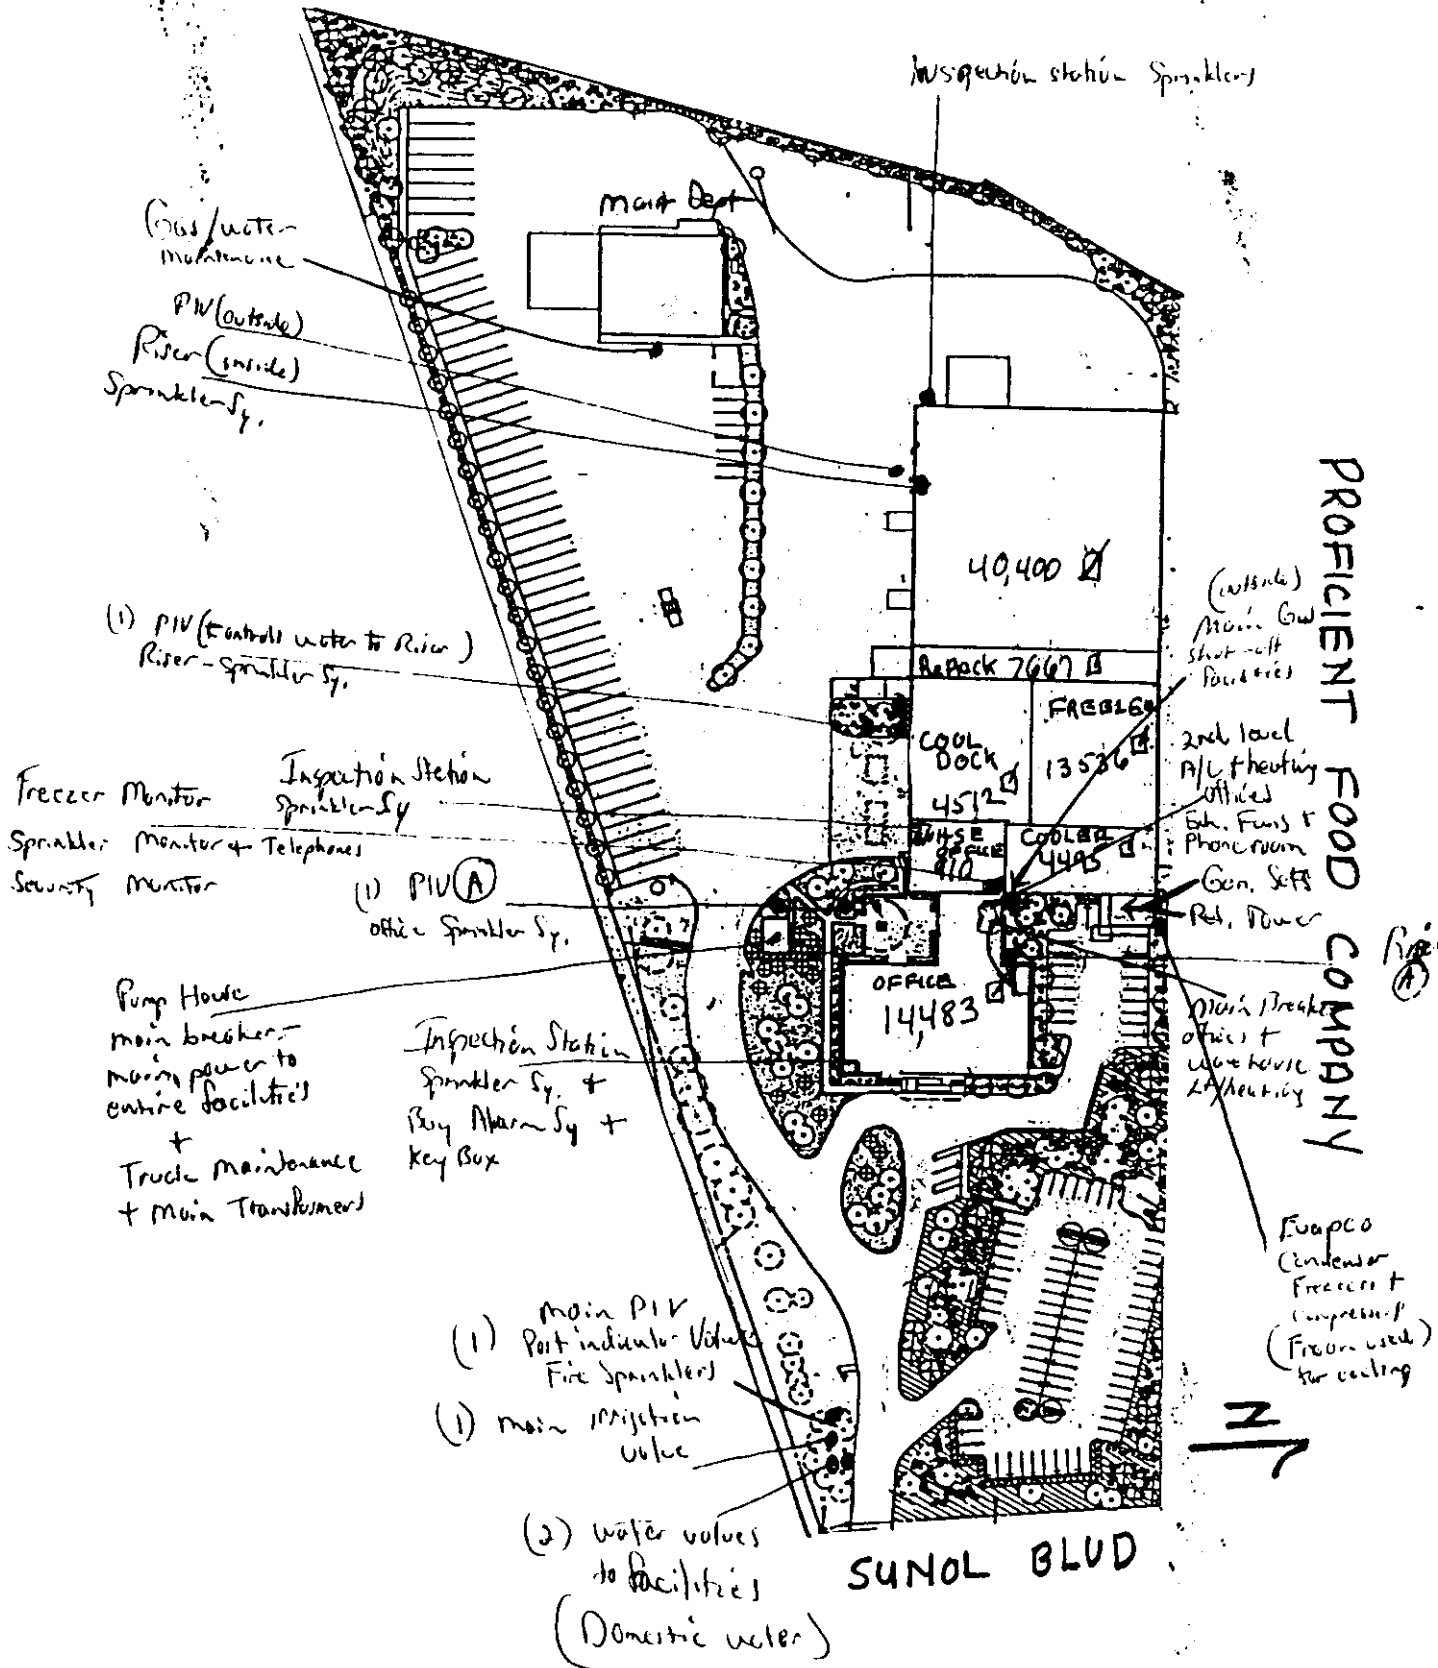 Inspection station Sprinklers
Maint Dept
Gas/water
maintenance
PIV (outside)
Riser (inside)
Sprinkler Sy.
40,400
PROFICIENT FOOD COMPANY
(outside)
Main Gas
shut-off
facilities
(1) PIV (Controls water to Riser)
Riser-Sprinkler Sy.
RePACK 7667
FREEZER
13536
COOL
DOCK
4512
2nd level
A/C + heating
offices
Exh. Fans +
Phone room
Gen. Sets
Ref. Tower
Inspection Station
Sprinkler Sy
Freezer Monitor
Sprinkler Monitor + Telephones
Security Monitor
WHSE
OFFICE
910
COOLER
4495
(1) PIV (A)
office Sprinkler Sy.
Riser
(A)
OFFICE
14,483
Main Breaker
offices +
warehouse
Lt/heating
Pump House
main breaker-
main power to
entire facilities
+
Truck maintenance
+ main Transformers
Inspection Station
Sprinkler Sy. +
Burg Alarm Sy +
Key Box
Evapco
Condensor
Freezers +
Compressors
(Freon used)
for cooling
(1) main PIV
Post indicator Valve
Fire Sprinklers
(1) main irrigation
valve
N
(2) water valves
to facilities
(Domestic water)
SUNOL BLVD.